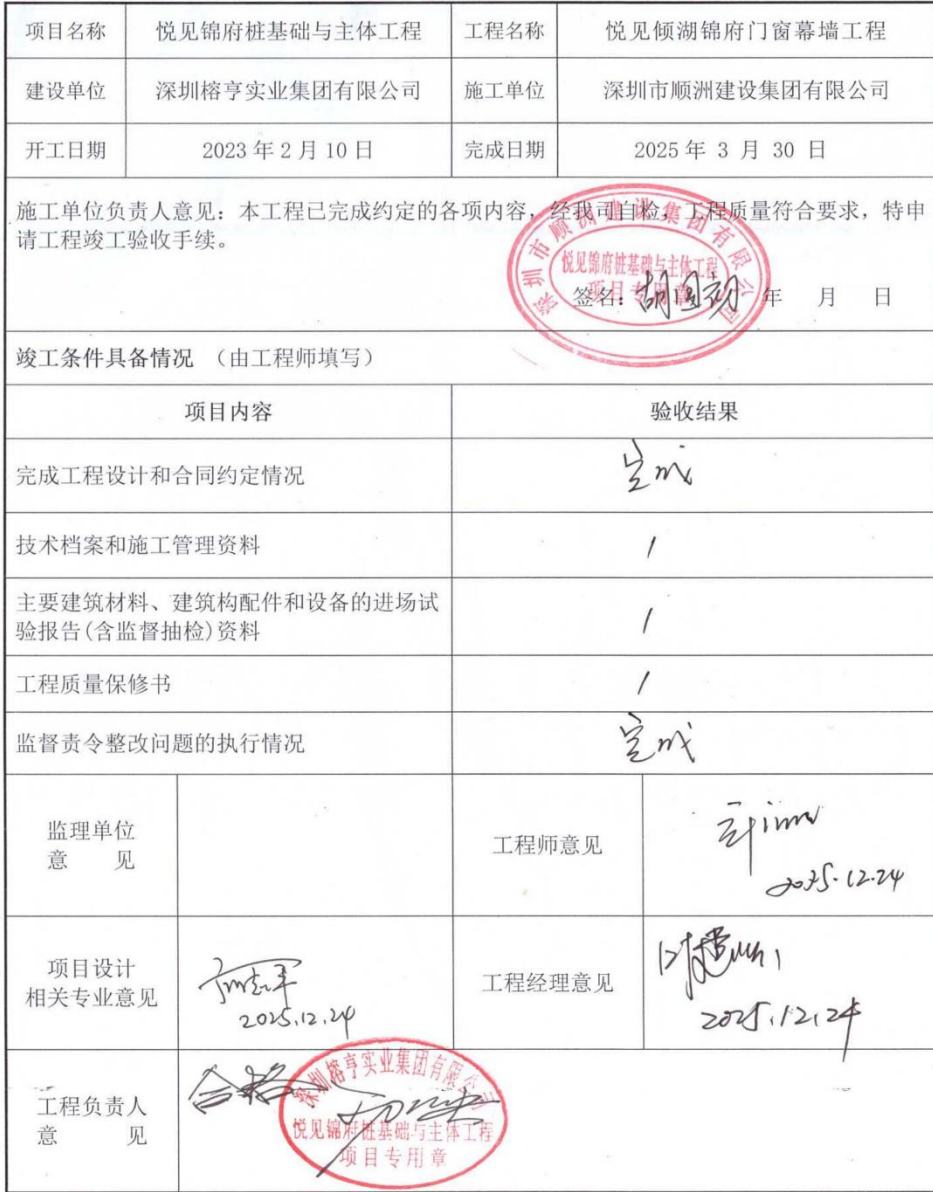 项目名称 悦见锦府桩基础与主体工程 工程名称 悦见倾湖锦府门窗幕墙工程
建设单位 深圳榕亨实业集团有限公司 施工单位 深圳市顺洲建设集团有限公司
开工日期 2023年2月10日 完成日期 2025年 3 月 30 日
施工单位负责人意见：本工程已完成约定的各项内容，经我司自检，工程质量符合要求，特申
请工程竣工验收手续。
深圳市顺洲建设集团有限公司
悦见锦府桩基础与主体工程
项目专用章
签名： 年 月 日
竣工条件具备情况 （由工程师填写）
项目内容 验收结果
完成工程设计和合同约定情况 完成
技术档案和施工管理资料 /
主要建筑材料、建筑构配件和设备的进场试
验报告(含监督抽检)资料 /
工程质量保修书 /
监督责令整改问题的执行情况 完成
监理单位
意 见
工程师意见
2025.12.24
项目设计
相关专业意见
2025.12.24
工程经理意见
2025.12.24
工程负责人
意 见
合格
深圳榕亨实业集团有限公司
悦见锦府桩基础与主体工程
项目专用章